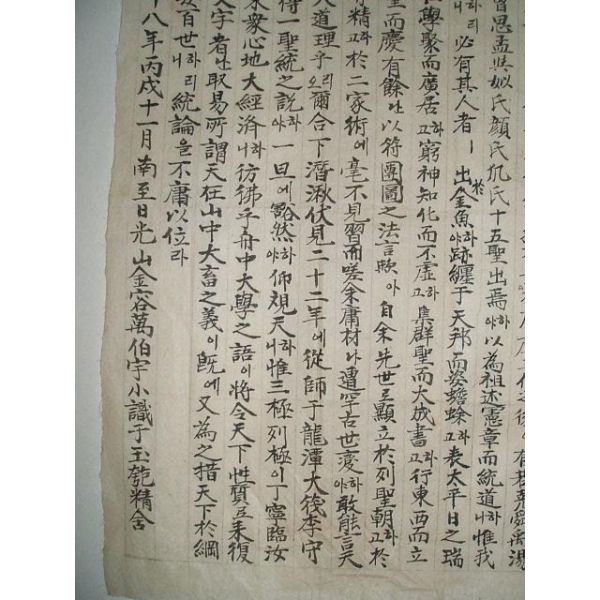 有若堯舜禹湯
曾思孟與姒氏顏氏仉氏十五聖出焉야하以為祖述憲章而統道니하惟我
하리必有其人者ㅣ出於金魚야하跡纏于天邦而姿蟾蜍고하表太平日之瑞
學聚而廣居고하窮神知化而不虛고하集群聖而大成書고하行東西而立
聖而慶有餘나以符團圖之法言歟아自余先世로顯立於列聖朝고하於
精고라於二家術에毫不見習而嗟余庸材나遭罕古世變야하敢能言天
八道理乎오리爾合下潛湫伏見二十二年에從師于龍潭大筏李守
得一聖統之說야하一旦에豁然야하仰視天니하惟三極列極이丁寧臨汝
衆心地大經済니하彷彿乎舟中大學之語이將令天下性質로来復
文字者나取易所謂天在山中大畜之義이旣에又為之措天下於綱
百世니하리統論을不庸以位라
十八年丙戌十一月南至日光山金容萬伯宇小識于玉匏精舍